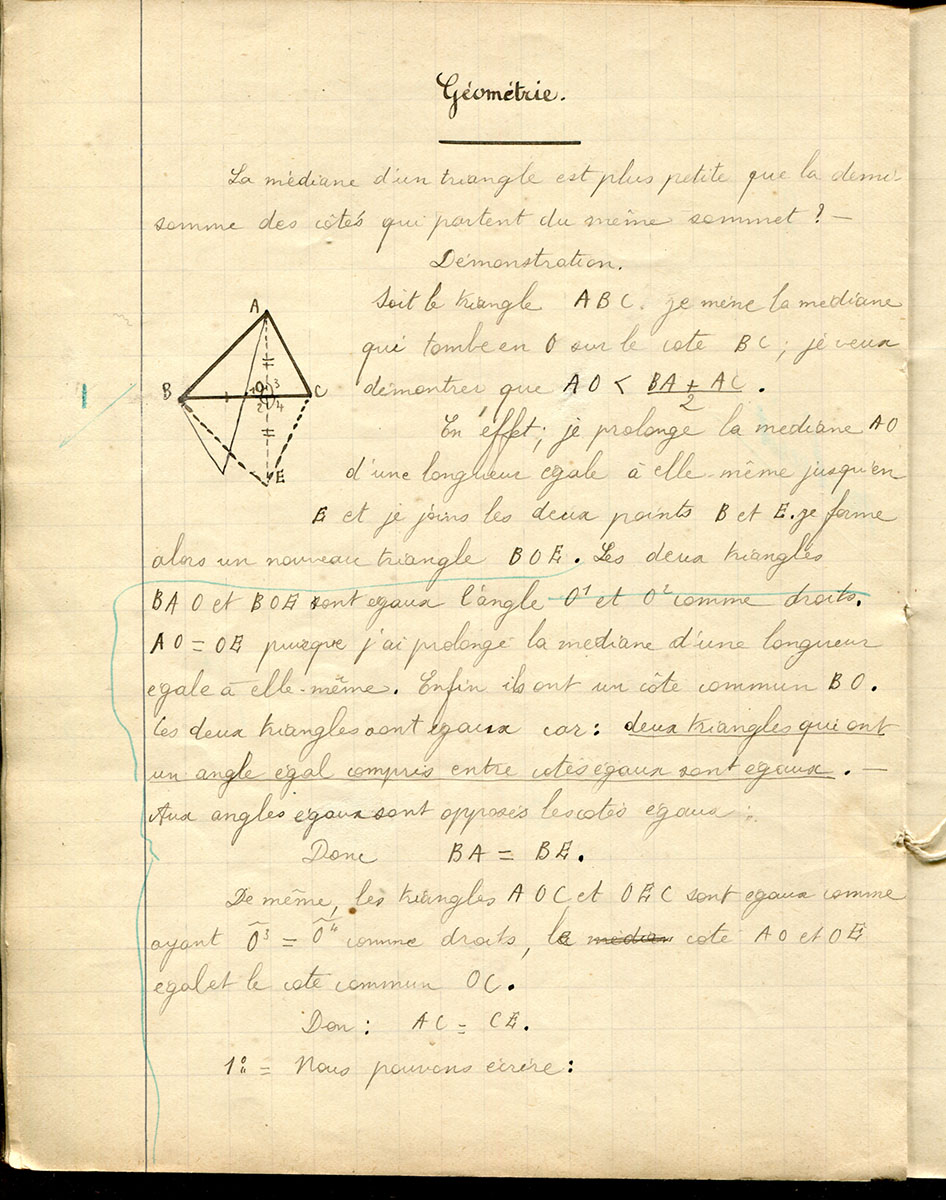 Géométrie.
La médiane d'un triangle est plus petite que la demi-
somme des côtés qui partent du même sommet ? —
Démonstration.
Soit le triangle A B C. je mène la mediane
qui tombe en O sur le coté BC ; je veux
démontrer que AO < BA + AC / 2 .
En effet ; je prolonge la mediane AO
d'une longueur égale à elle-même jusqu'en
E et je joins les deux points B et E. je forme
alors un nouveau triangle BOE. Les deux triangles
BAO et BOE sont egaux l'angle O¹ et O² comme droits.
AO = OE puisque j'ai prolongé la mediane d'une longueur
egale à elle-même. Enfin ils ont un côté commun BO.
Ces deux triangles sont égaux car : deux triangles qui ont
un angle égal compris entre cotés egaux sont egaux. —
Aux angles égaux sont opposés les cotés egaux :
Donc BA = BE.
De même, les triangles AOC et OEC sont egaux comme
ayant O³ = O⁴ comme droits, le median coté AO et OE
égal et le coté commun OC.
Don : AC = CE.
1º = Nous pouvons écrire :
A
B
O
1
3
2
4
C
E